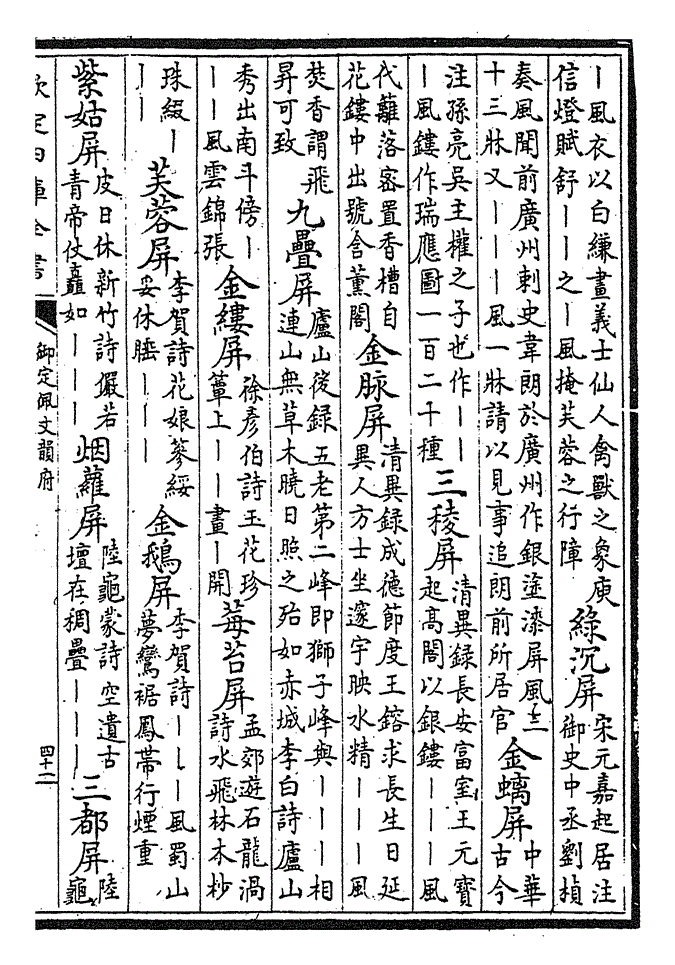 〡風衣以白縑畫義士仙人禽獸之象庾
信燈賦舒〡〡之〡風掩芙蓉之行障
綠沉屏
宋元嘉起居注
御史中丞劉楨
奏風聞前廣州刺史韋朗於廣州作銀塗漆屏風二
十三牀又〡〡〡風一牀請以見事追朗前所居官
金螭屏
中華
古今
注孫亮吳主權之子也作〡〡
〡風鏤作瑞應圖一百二十種
三稜屏
清異録長安富室王元寶
起高閣以銀鏤〡〡〡風
代籬落密置香槽自
花鏤中出號含薰閣
金脉屏
清異録成德節度王鎔求長生日延
異人方士坐邃宇映水精〡〡〡風
焚香謂飛
昇可致
九疊屏
廬山後録五老第二峰即獅子峰與〡〡〡相
連山無草木曉日照之殆如赤城李白詩廬山
秀出南斗傍〡
〡〡風雲錦張
金縷屏
徐彥伯詩玉花珍
簟上〡〡畫〡開
莓苔屏
孟郊遊石龍渦
詩水飛林木杪
珠綴〡
〡〡
芙蓉屏
李賀詩花娘篸綏
妥休睡〡〡〡
金鵝屏
李賀詩〡〡〡風蜀山
夢鸞裾鳳帶行煙重
紫姑屏
皮日休新竹詩儼若
青帝仗矗如〡〡〡
烟蘿屏
陸龜蒙詩空遺古
壇在稠疊〡〡〡
三都屏
陸
龜
欽定四庫全書
御定佩文韻府
四十二